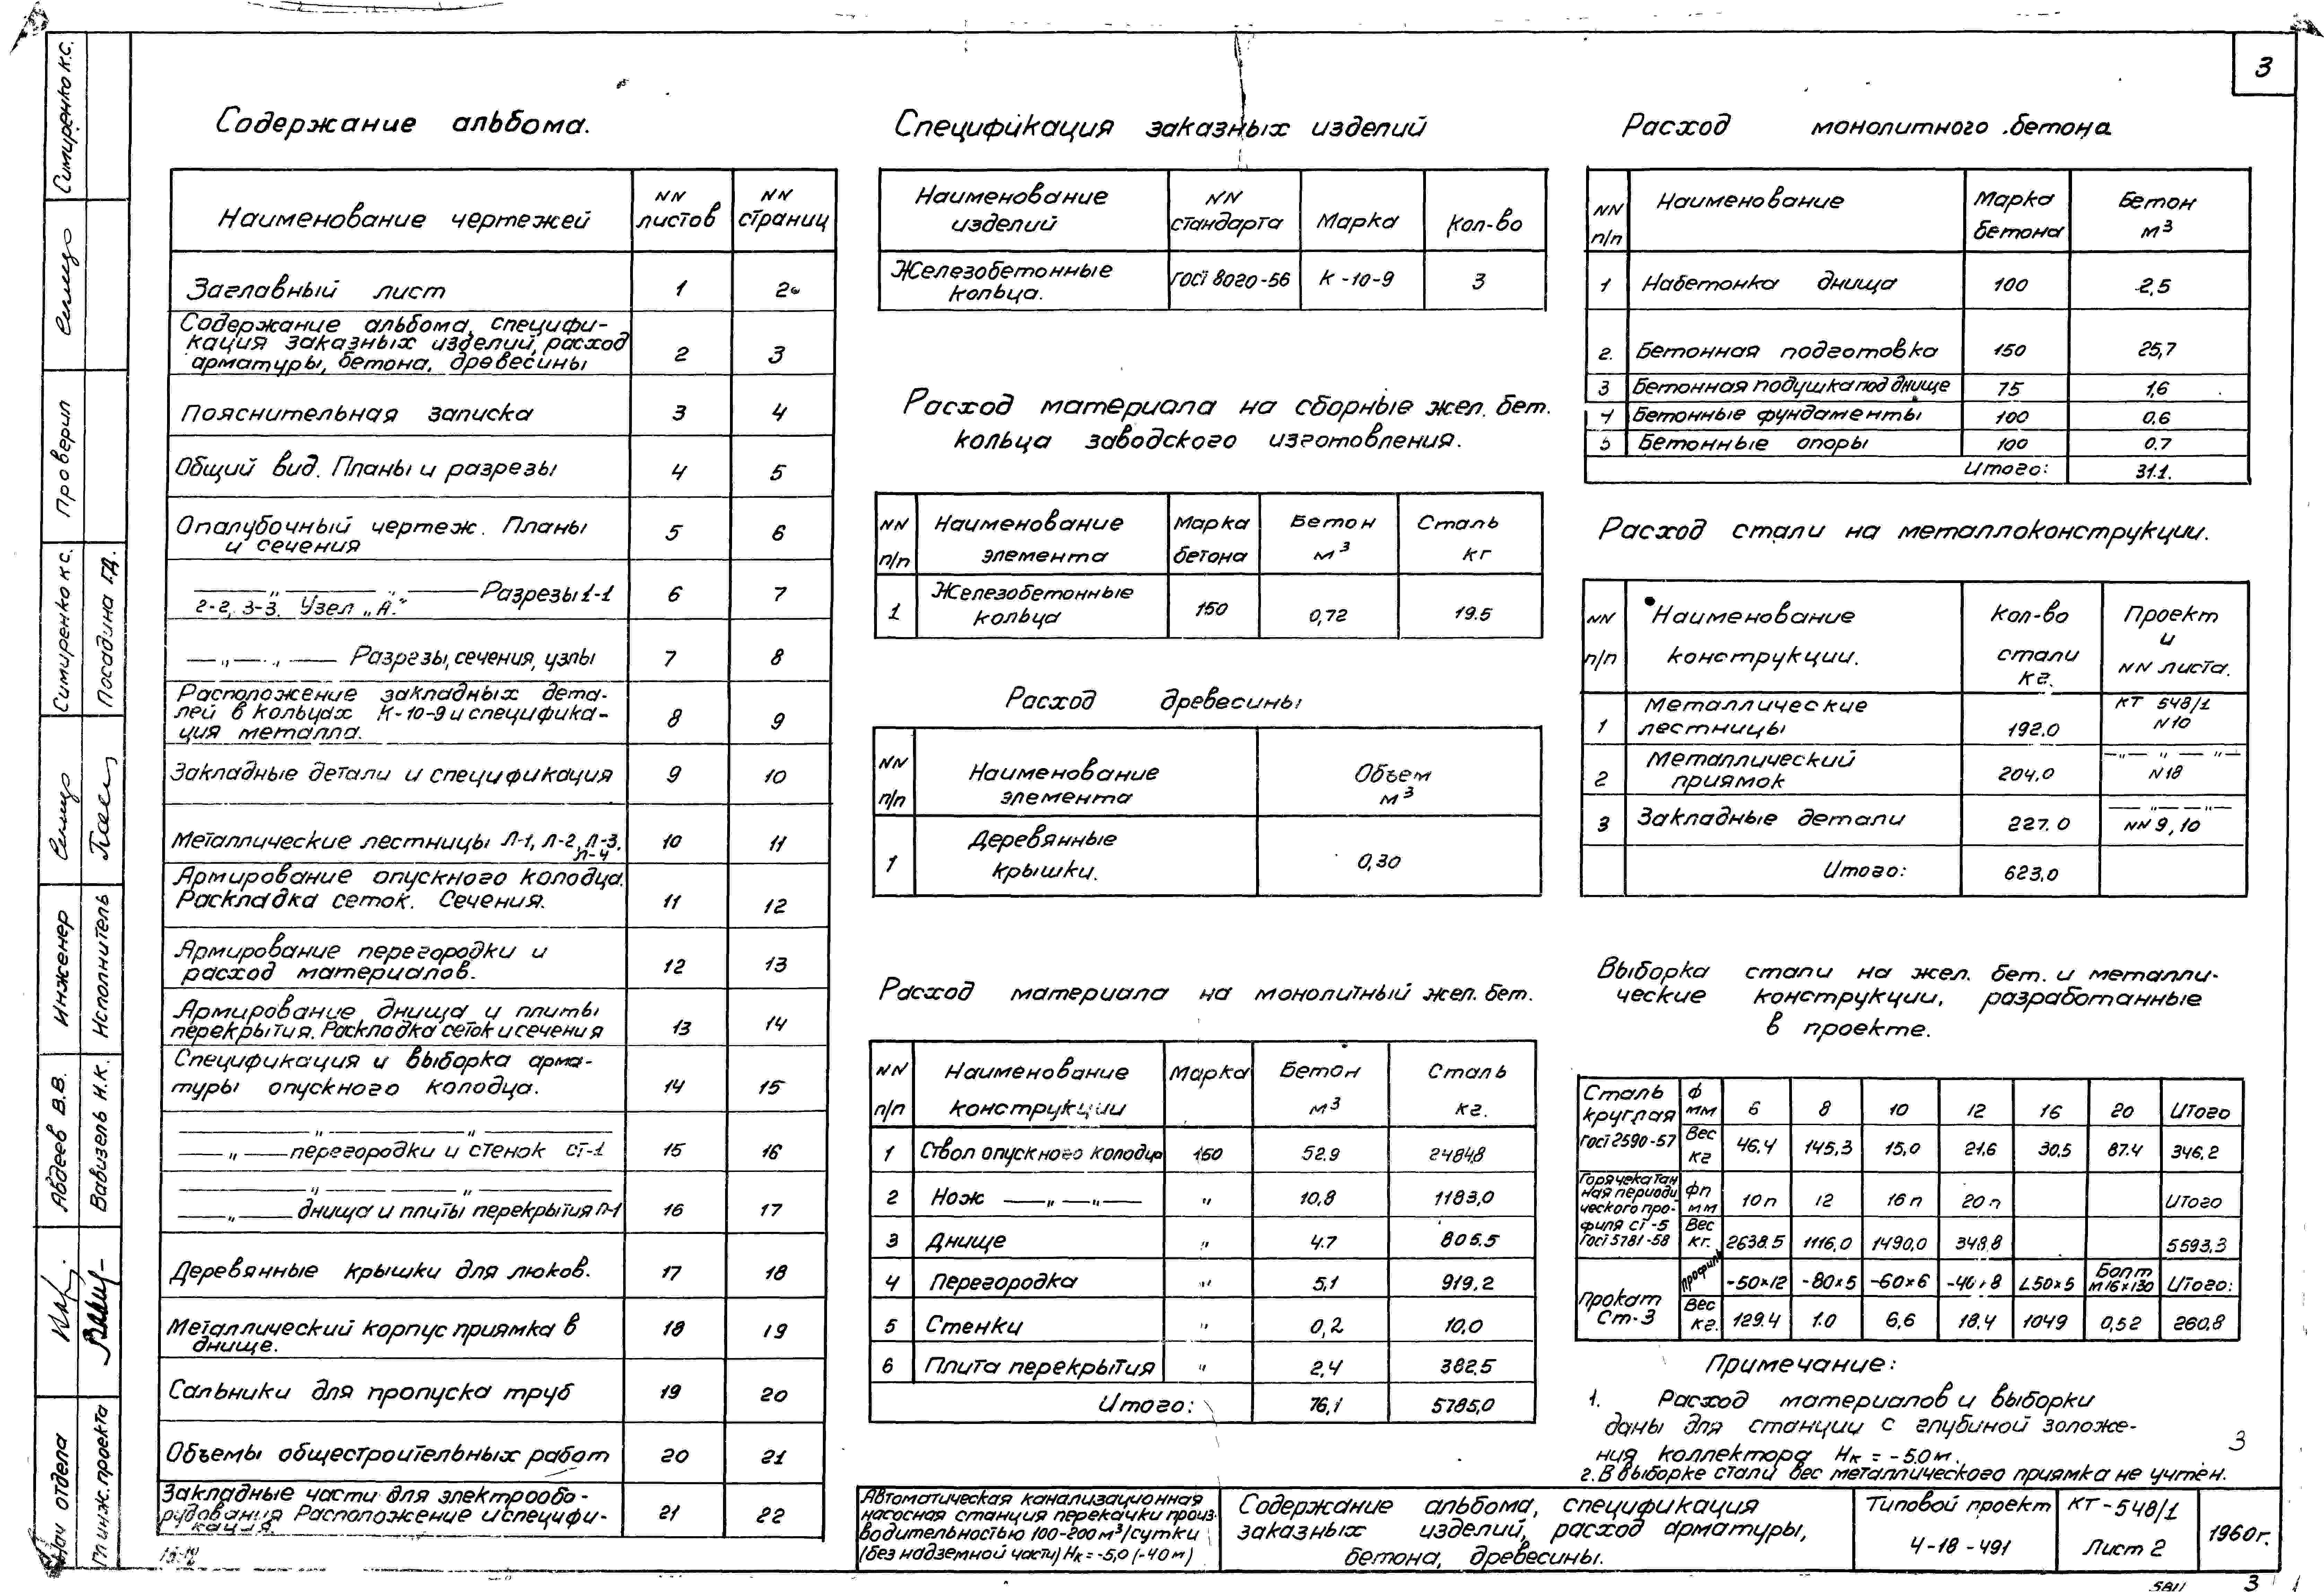 3
Содержание альбома.
Наименование чертежей | NN листов | NN страниц
Заглавный лист | 1 | 2
Содержание альбома, специфи-
кация заказных изделий, расход
арматуры, бетона, древесины | 2 | 3
Пояснительная записка | 3 | 4
Общий вид. Планы и разрезы | 4 | 5
Опалубочный чертеж. Планы
и сечения | 5 | 6
—„— —„— Разрезы 1-1
2-2, 3-3. Узел „А." | 6 | 7
—„—„— Разрезы, сечения, узлы | 7 | 8
Расположение закладных дета-
лей в кольцах К-10-9 и специфика-
ция металла. | 8 | 9
Закладные детали и спецификация | 9 | 10
Металлические лестницы Л-1, Л-2, Л-3,
Л-4 | 10 | 11
Армирование опускного колодца.
Раскладка сеток. Сечения. | 11 | 12
Армирование перегородки и
расход материалов. | 12 | 13
Армирование днища и плиты
перекрытия. Раскладка сеток и сечения | 13 | 14
Спецификация и выборка арма-
туры опускного колодца. | 14 | 15
—„— —„—
—„— перегородки и стенок ст-1 | 15 | 16
—„— —„—
—„— днища и плиты перекрытия П-1 | 16 | 17
Деревянные крышки для люков. | 17 | 18
Металлический корпус приямка в
днище. | 18 | 19
Сальники для пропуска труб | 19 | 20
Объемы общестроительных работ | 20 | 21
Закладные части для электрообо-
рудования Расположение и специфи-
кация. | 21 | 22
Спецификация заказных изделий
Наименование изделий | NN стандарта | Марка | Кол-во
Железобетонные
кольца. | ГОСТ 8020-56 | К-10-9 | 3
Расход материала на сборные жел. бет.
кольца заводского изготовления.
NN п/п | Наименование элемента | Марка бетона | Бетон м³ | Сталь кг
1 | Железобетонные кольца | 150 | 0,72 | 19.5
Расход древесины
NN п/п | Наименование элемента | Объем м³
1 | Деревянные крышки. | 0,30
Расход материала на монолитный жел. бет.
NN п/п | Наименование конструкции | Марка | Бетон м³ | Сталь кг.
1 | Ствол опускного колодца | 150 | 52.9 | 2484,8
2 | Нож —„—„— | " | 10,8 | 1183,0
3 | Днище | " | 4.7 | 805.5
4 | Перегородка | " | 5,1 | 919,2
5 | Стенки | " | 0,2 | 10,0
6 | Плита перекрытия | " | 2,4 | 382,5
Итого: | 76,1 | 5785,0
Расход монолитного бетона
NN п/п | Наименование | Марка бетона | Бетон м³
1 | Набетонка днища | 100 | 2,5
2. | Бетонная подготовка | 150 | 25,7
3 | Бетонная подушка под днище | 75 | 1,6
4 | Бетонные фундаменты | 100 | 0,6
5 | Бетонные опоры | 100 | 0.7
Итого: | 31.1.
Расход стали на металлоконструкции.
NN п/п | Наименование конструкции. | Кол-во стали кг. | Проект и NN листа.
1 | Металлические лестницы | 192.0 | КТ 548/1 N10
2 | Металлический приямок | 204,0 | —„—„—„— N18
3 | Закладные детали | 227.0 | —„—„— NN 9, 10
Итого: | 623,0
Выборка стали на жел. бет. и металли-
ческие конструкции, разработанные
в проекте.
Сталь круглая ГОСТ 2590-57 | ф мм | 6 | 8 | 10 | 12 | 16 | 20 | Итого
Вес кг | 46.4 | 145,3 | 15,0 | 21,6 | 30,5 | 87.4 | 346,2
Горячекатан
ная периоди
ческого про-
филя Ст-5
ГОСТ 5781-58 | фп мм | 10п | 12 | 16п | 20п | Итого
Вес кг. | 2638.5 | 1116,0 | 1490,0 | 348,8 | 5593,3
Прокат Ст-3 | Профиль | -50×12 | -80×5 | -60×6 | -40×8 | L50×5 | Болт М16×130 | Итого:
Вес кг. | 129.4 | 1.0 | 6,6 | 18.4 | 1049 | 0,52 | 260,8
Примечание:
1. Расход материалов и выборки
даны для станции с глубиной заложе-
ния коллектора Нк = -5.0 м.
2. В выборке стали вес металлического приямка не учтен.
3
Автоматическая канализационная
насосная станция перекачки произ-
водительностью 100-200 м³/сутки
(без надземной части) Нк = -5,0 (-4,0 м)
Содержание альбома, спецификация
заказных изделий, расход арматуры,
бетона, древесины.
Типовой проект
4-18-491
КТ-548/1
Лист 2
1960г.
5811
3
Симиренко К.С.
Проверил
Симиренко К.С.
Посадина Г.Д.
Инженер
Исполнитель
Авдеев В.В.
Вавизель Н.К.
Нач отдела
Гл инж. проекта